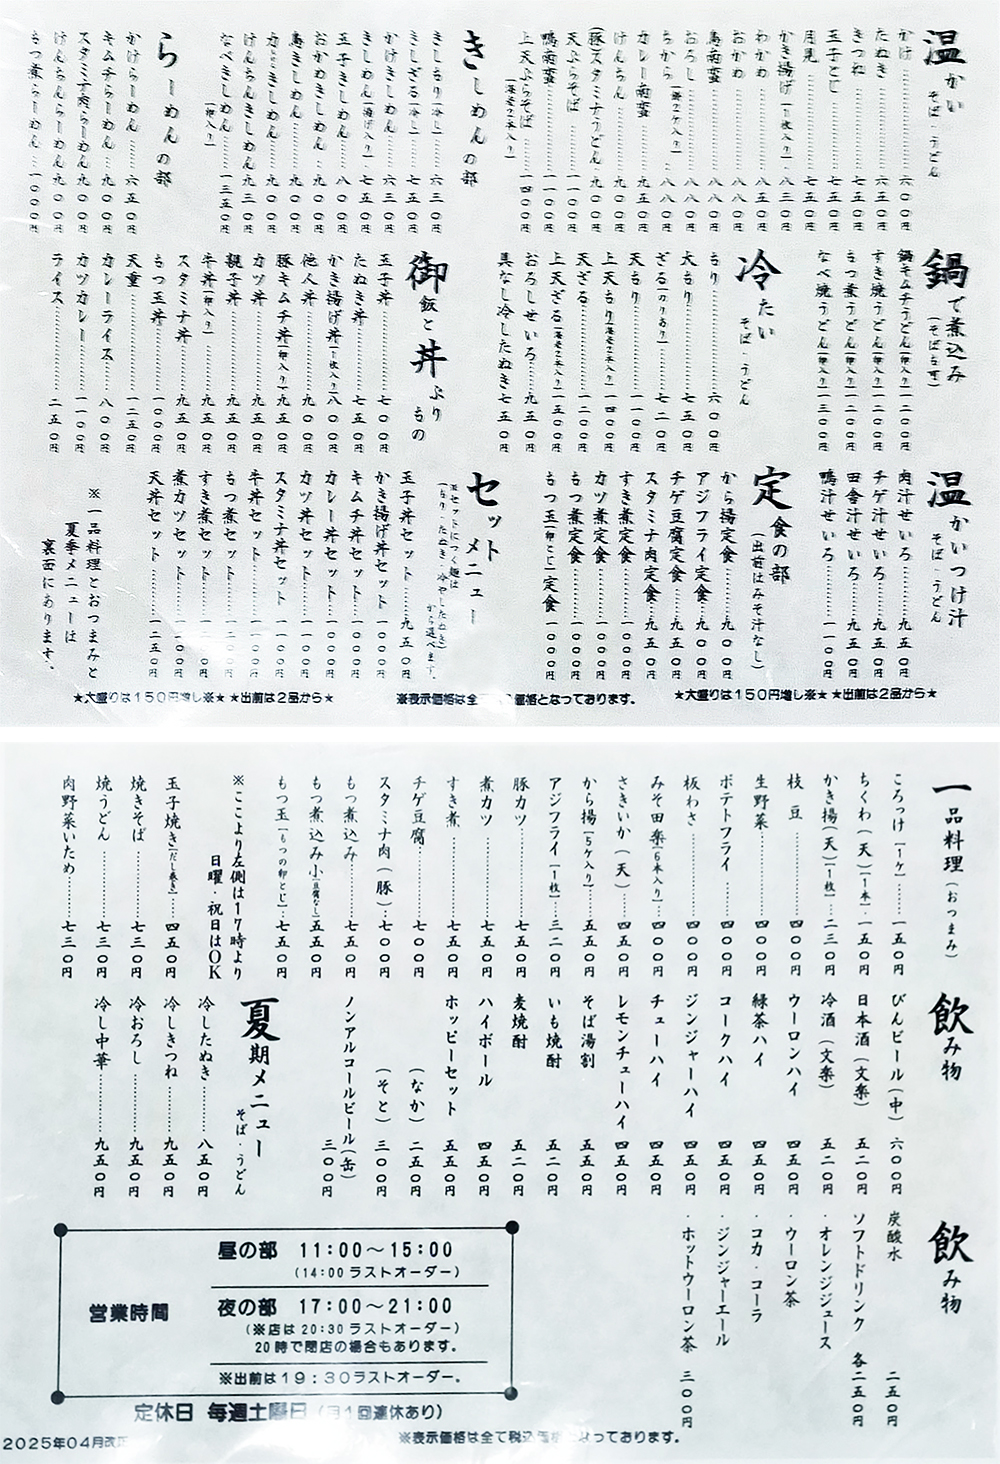 温かい そば・うどん
かけ……六〇〇円
たぬき……六五〇円
きつね……七五〇円
玉子とじ……七五〇円
月見……七五〇円
かき揚げ(一枚入り)……八三〇円
わかめ……八五〇円
おかめ……八八〇円
鳥南蛮……八八〇円
おろし……八八〇円
ちから(餅2ケ入り)……八八〇円
カレー南蛮……九五〇円
けんちん……九〇〇円
(豚)スタミナうどん……九〇〇円
天ぷらそば……一一〇〇円
鴨南蛮……一一〇〇円
上天ぷらそば(海老2本入り)……一四〇〇円
きしめんの部
きしもり(冷し)……六三〇円
きしざる(冷し)……七五〇円
かけきしめん……六三〇円
きしめん(揚げ入り)……七五〇円
玉子きしめん……八〇〇円
おかめきしめん……九〇〇円
鳥きしめん……九〇〇円
カレーきしめん……九五〇円
けんちんきしめん……九三〇円
なべきしめん(卵入り)……一三五〇円
らーめんの部
かけらーめん……六五〇円
キムチらーめん……九〇〇円
スタミナ肉らーめん……九〇〇円
けんちんらーめん……九〇〇円
もつ煮らーめん……一〇〇〇円
鍋で煮込み(そば も可)
鍋キムチうどん(卵入り)一二〇〇円
すき焼うどん(卵入り)一二〇〇円
もつ煮うどん(卵入り)一二〇〇円
なべ焼うどん(卵入り)一三〇〇円
冷たい そば・うどん
もり……六〇〇円
大もり……七五〇円
ざる(のりあり)……七二〇円
天もり……一一〇〇円
上天もり(海老2本入り)一四〇〇円
天ざる……一二〇〇円
上天ざる(海老2本入り)一五〇〇円
おろしせいろ……九五〇円
具なし冷したぬき七五〇円
御飯と丼ぶりもの
玉子丼……七〇〇円
たぬき丼……七五〇円
かき揚げ丼(一枚入り)八〇〇円
他人丼……九五〇円
豚キムチ丼(卵入り)九五〇円
カツ丼……九五〇円
親子丼……九五〇円
牛丼(卵入り)……九五〇円
スタミナ丼……九五〇円
もつ玉丼……一〇〇〇円
天重……一二五〇円
カレーライス……八〇〇円
カツカレー……一一〇〇円
ライス……二五〇円
温かいつけ汁 そば・うどん
肉汁せいろ……九五〇円
チゲ汁せいろ……九五〇円
田舎汁せいろ……九五〇円
鴨汁せいろ……一一〇〇円
定食の部(出前はみそ汁なし)
から揚定食……九〇〇円
アジフライ定食……九〇〇円
チゲ豆腐定食……九五〇円
スタミナ肉定食……九五〇円
すき煮定食……一〇〇〇円
カツ煮定食……一〇〇〇円
もつ煮定食……一〇〇〇円
もつ玉(卵とじ)定食 一〇〇〇円
セットメニュー
※セットにつく麺は
(もり・たぬき・冷やしたぬき)
から選べます。
玉子丼セット……九五〇円
かき揚げ丼セット……一〇〇〇円
キムチ丼セット……一一〇〇円
カレー丼セット……一一〇〇円
カツ丼セット……一一〇〇円
スタミナ丼セット……一一〇〇円
牛丼セット……一一〇〇円
もつ煮セット……一二〇〇円
すき煮セット……一二〇〇円
煮カツセット……一二五〇円
天丼セット……一二五〇円
※一品料理とおつまみと
夏季メニューは
裏面にあります。
★大盛りは150円増し※★★出前は2品から★
※表示価格は全 価格となっております。
★大盛りは150円増し※★★出前は2品から★
一品料理(おつまみ)
ころっけ(1ケ)……一五〇円
ちくわ(天)(1本)・一五〇円
かき揚(天)(1枚)…二三〇円
枝豆……四〇〇円
生野菜……四〇〇円
ポテトフライ……四〇〇円
板わさ……四〇〇円
みそ田楽(6本入り)……四〇〇円
さきいか(天)……四五〇円
から揚(5ケ入り)……五五〇円
アジフライ(1枚)……三二〇円
豚カツ……七五〇円
煮カツ……七五〇円
すき煮……七五〇円
チゲ豆腐……七〇〇円
スタミナ肉(豚)……七〇〇円
もつ煮込み……七五〇円
もつ煮込み小(豆腐なし)五五〇円
もつ玉(もつの卵とじ)…七五〇円
※ここより左側は17時より
日曜・祝日はOK
玉子焼き(だし巻き)……四五〇円
焼きそば……七三〇円
焼うどん……七三〇円
肉野菜いため……七三〇円
飲み物
びんビール(中) 六〇〇円
日本酒(文楽) 五二〇円
冷酒(文楽) 五二〇円
ウーロンハイ 四五〇円
緑茶ハイ 四五〇円
コークハイ 四五〇円
ジンジャーハイ 四五〇円
チューハイ 四五〇円
レモンチューハイ 四五〇円
そば湯割 五五〇円
いも焼酎 五二〇円
麦焼酎 五二〇円
ハイボール 四五〇円
ホッピーセット 五五〇円
(なか) 二五〇円
(そと) 三〇〇円
ノンアルコールビール(缶) 三〇〇円
夏期メニュー そば・うどん
冷したぬき……八五〇円
冷しきつね……九五〇円
冷おろし……九五〇円
冷し中華……九五〇円
飲み物
炭酸水 二五〇円
ソフトドリンク 各二五〇円
・オレンジジュース
・ウーロン茶
・コカ・コーラ
・ジンジャーエール
・ホットウーロン茶 三〇〇円
営業時間
昼の部 11:00〜15:00
(14:00 ラストオーダー)
夜の部 17:00〜21:00
(※店は 20:30 ラストオーダー)
20時で閉店の場合もあります。
※出前は19:30ラストオーダー。
定休日 毎週土曜日(月1回連休あり)
※表示価格は全て税込価格となっております。
2025年04月改正